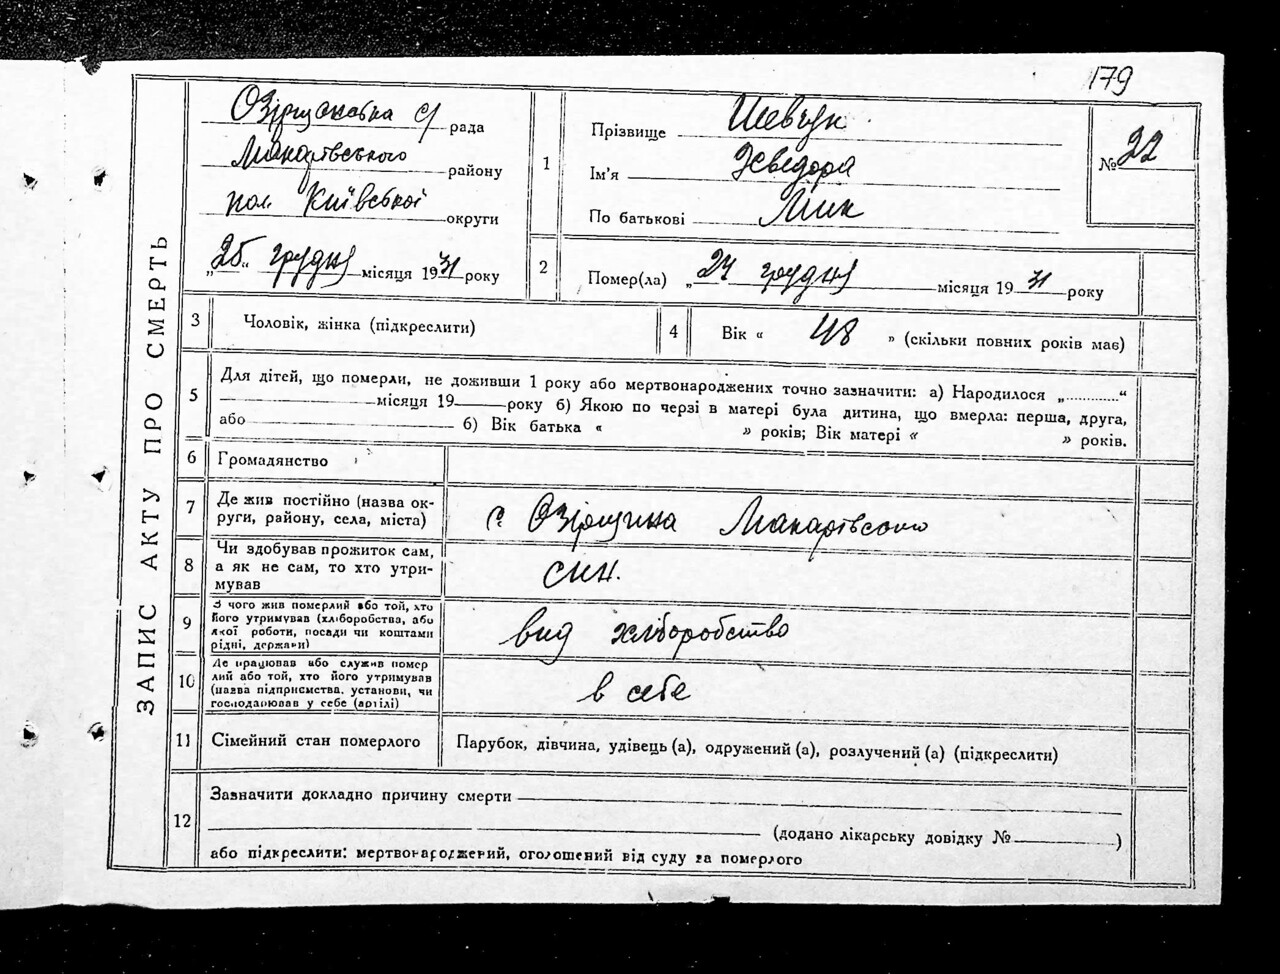 179
ЗАПИС АКТУ ПРО СМЕРТЬ
Озірщанська с/ рада
Макарівського району
пол Київської округи
„25“ грудня місяця 1931 року
1
Прізвище Шевчук
Ім'я
По батькові Мик
№ 22
2
Помер(ла) „24 грудня місяця 1931 року
3
Чоловік, жінка (підкреслити)
4
Вік « 48 » (скільки повних років має)
5
Для дітей, що померли, не доживши 1 року або мертвонароджених точно зазначити: а) Народилося „............“
місяця 19 року б) Якою по черзі в матері була дитина, що вмерла: перша, друга,
або б) Вік батька « » років; Вік матері « » років.
6
Громадянство
7
Де жив постійно (назва ок-
руги, району, села, міста)
с. Озірщина Макарівського
8
Чи здобував прожиток сам,
а як не сам, то хто утри-
мував
син.
9
З чого жив померлий або той, хто
його утримував (хліборобства, або
якої роботи, посади чи коштами
рідні, держави)
вид хліборобство
10
Де працював або служив помер
лий або той, хто його утримував
(назва підприємства, установи, чи
господарював у себе (артілі)
в себе
11
Сімейний стан померлого
Парубок, дівчина, удівець (а), одружений (а), розлучений (а) (підкреслити)
12
Зазначити докладно причину смерти
(додано лікарську довідку № )
або підкреслити: мертвонароджений, оголошений від суду за померлого